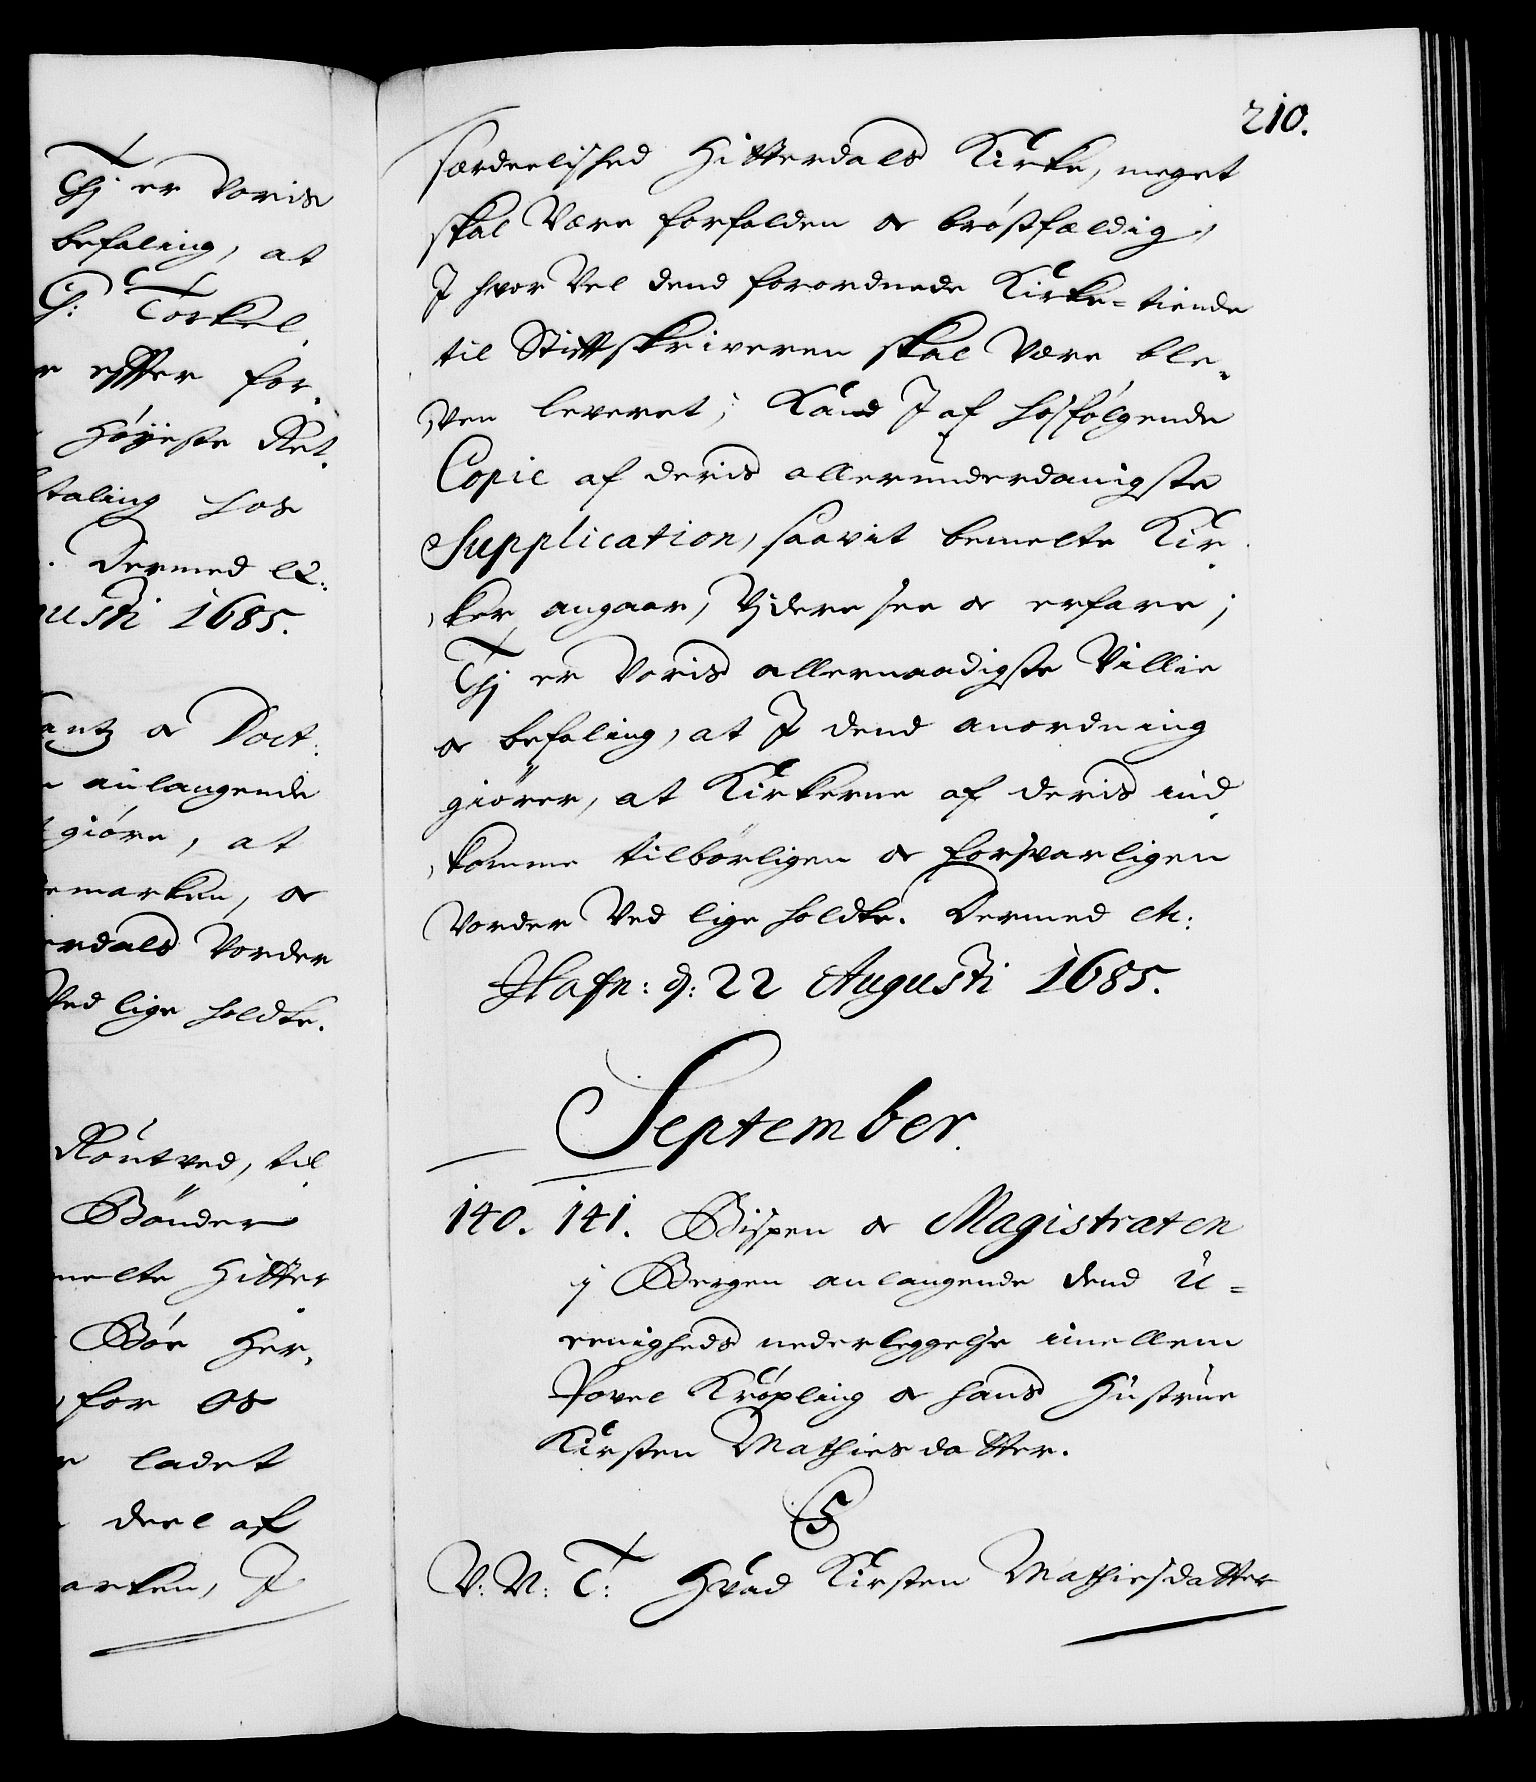 Thj er Voris
befaling, at
Torkel
effter for,
Høyeste Ret,
taling hos
Dermed etc:
usti 1685.
antz oc Doct:
anlangende
giøre, at
emarken, oc
erdals Vorder
Ved lige holdte.
Røntved, til
Bønder
melte Hitter,
Bøe Her,
for os
ladet
deel af
arken, J
210.
særdeelished Hitterdals Kirke, meget
skal være forfalden oc brøstfældig,
J hvor vel dend forordnede Kirke=tiende
til Stifftskriveren skal være ble,
,ven leveret; Kand J af hosfølgende
Copie af deris allerunderdanigste
Supplication, saavit bemelte Kir,
,ker angaar, Vjdere see oc erfare;
Thj er Voris allernaadigste Villie
oc befaling, at J dend anordning
giører, at Kirkerne af deris ind,
,komme tilbørligen oc forsvarligen
Vorder Ved lige holdte. Dermed etc:
Hafn: d: 22 Augusti 1685.
September.
140. 141. Bispen oc Magistraten
j Bergen anlangende dend U=
eenigheds nederleggelse imellem
Povel Krøpling oc hans Hustrue
Kirsten Mathiesdatter.
C5
V: N: T: Hvad Kirsten Mathiesdatter